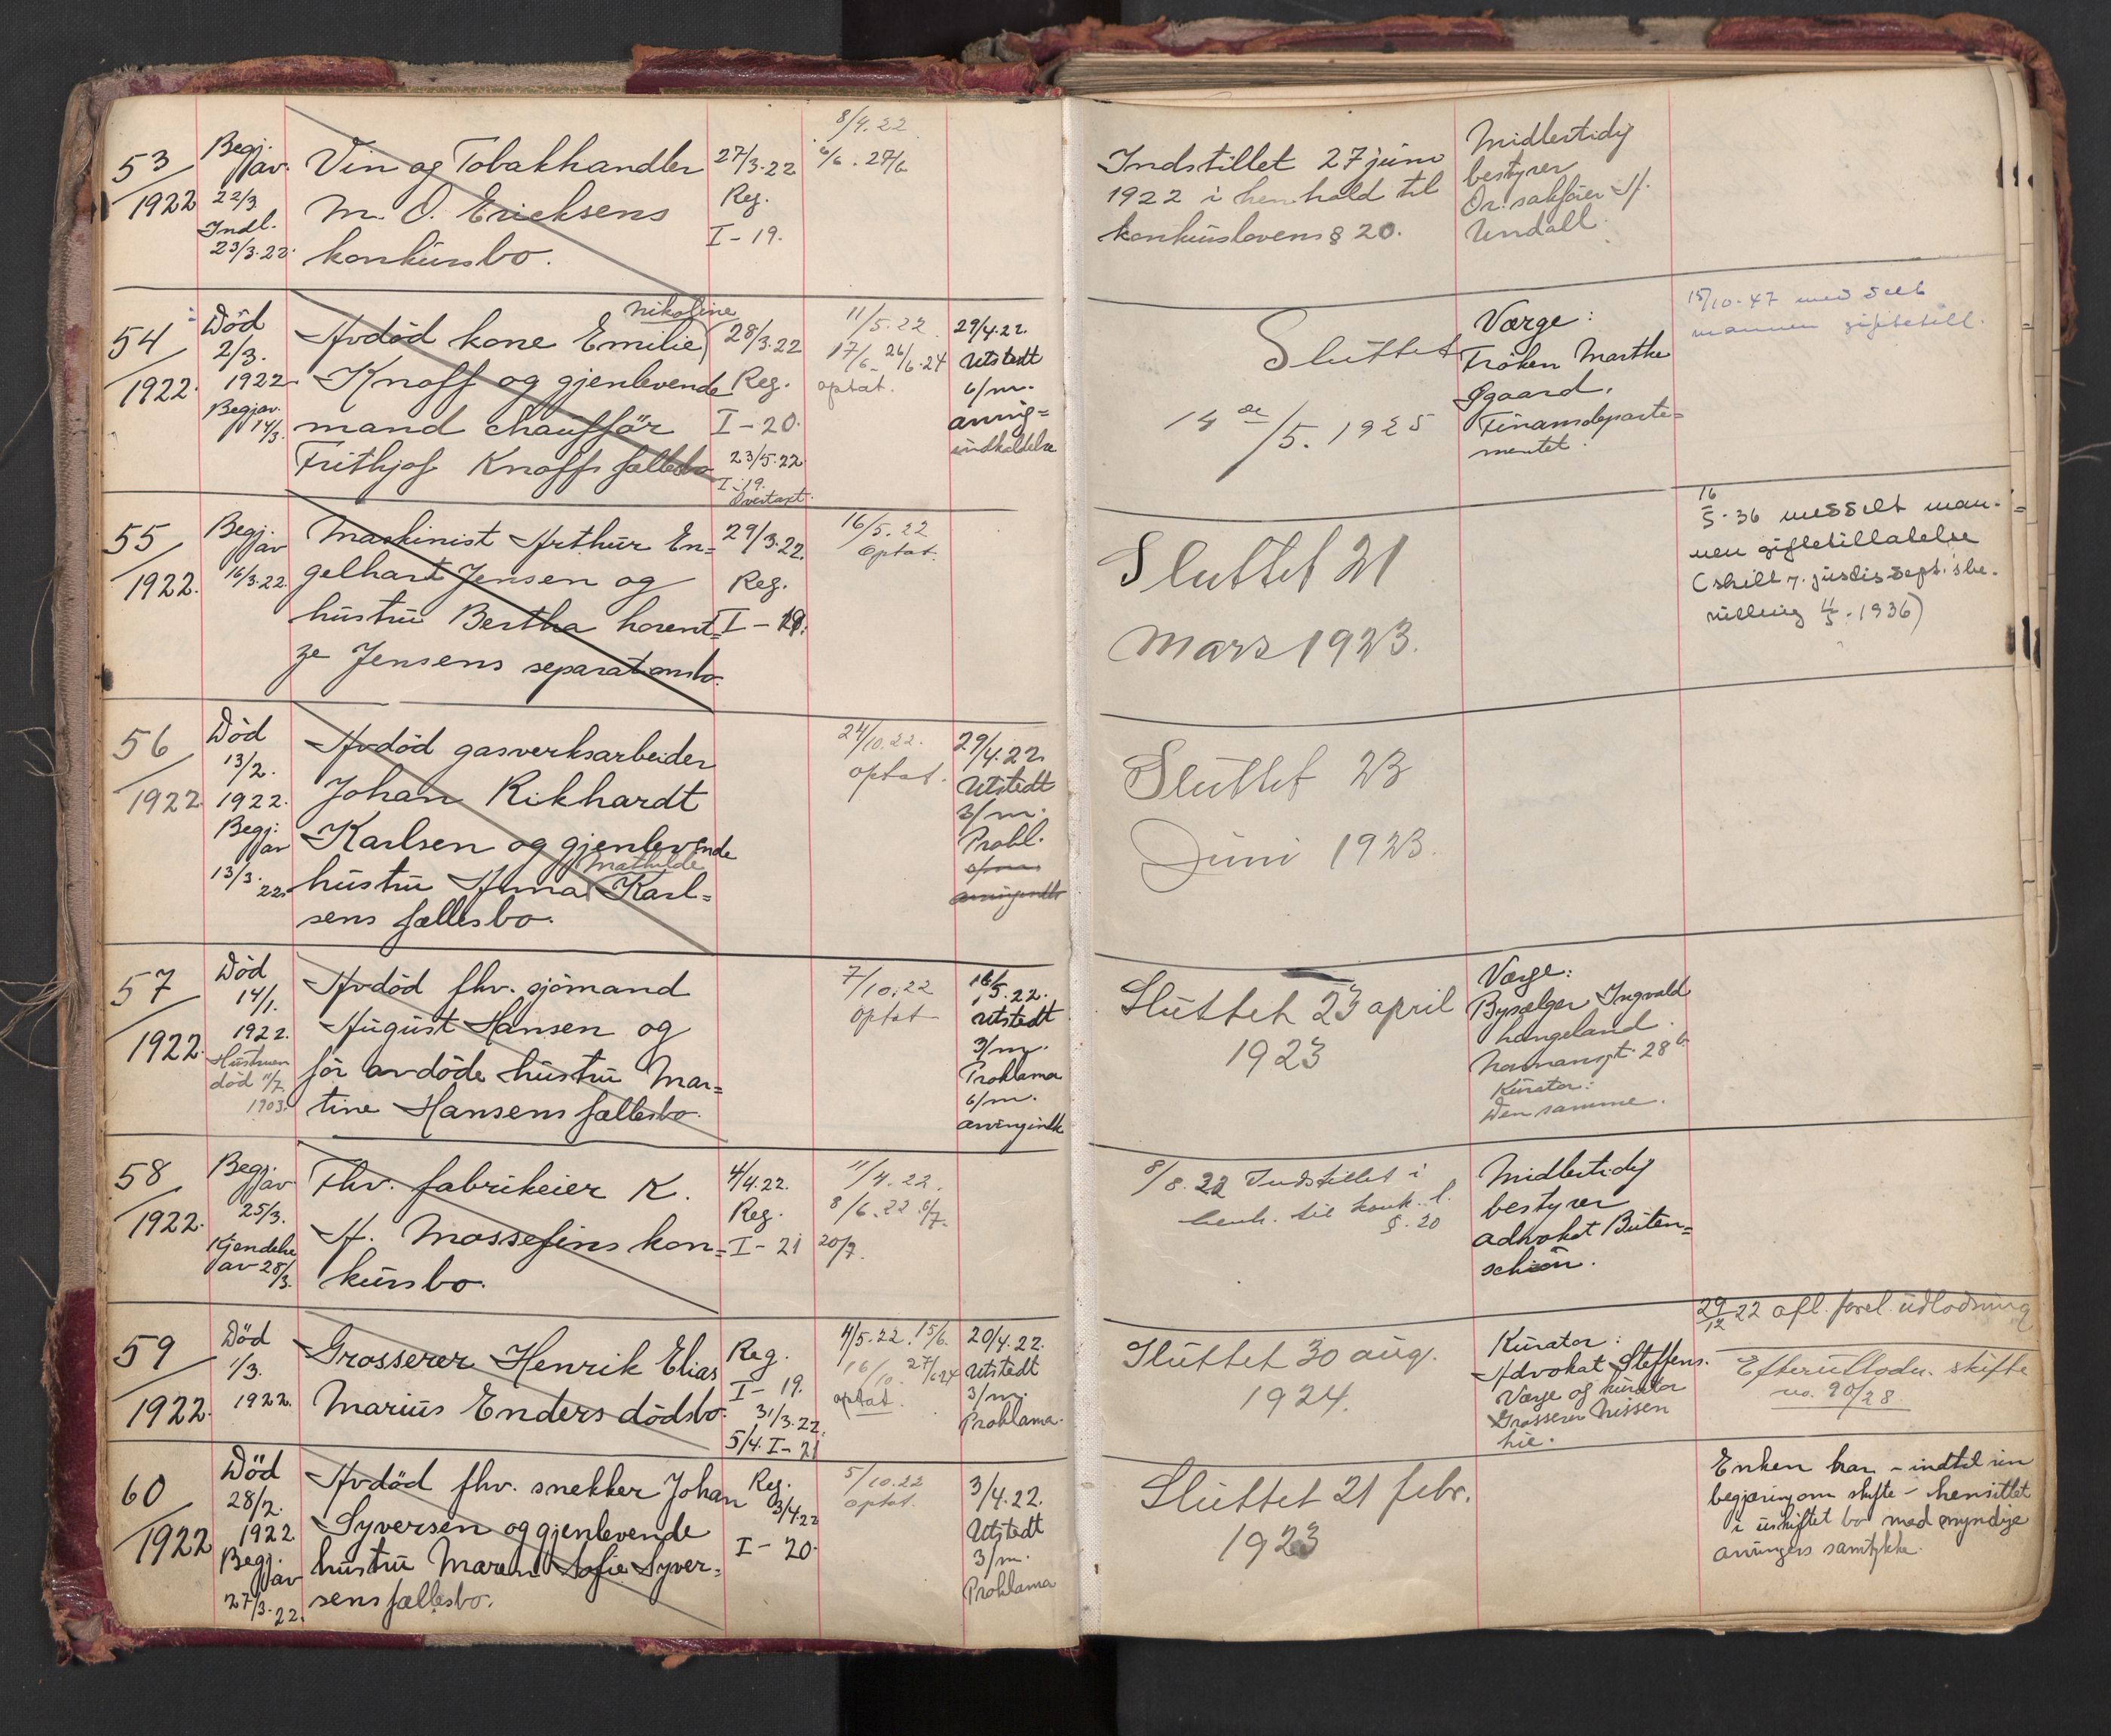 53
1922
Begj. av
22/3
Indl.
23/3.22.
Vin og Tobakhandler
M. O. Ericksens
konkursbo.
27/3.22
Reg.
I-19.
8/4.22
6/6. 27/6
Indstillet 27 juni
1922 i henhold til
konkurslovens § 20.
Midlertidig
bestyrer
Or. sakfører
Undall.
54
1922.
Död
2/3.
1922.
Begj. av.
14/3.
Nikoline
Avdöd kone Emilie
Knoff og gjenlevende
mand chaufför
Frithjof Knoffs fællesbo
28/3.22
Reg.
I-20.
23/5.22
I-19.
Overtaxt.
11/5.22
17/6 26/6.24
optat.
29/4.22.
Utstedt
6/m.
arving=
indkaldelse
Sluttet
14 de/5. 1925
Værge:
Fröken Marthe
Ggaard,
Finansdeparte=
mentet.
15/10-47 medd selt
mannen giftetill.
55
1922.
Begj. av
16/3.22.
Maskinist Arthur En=
gelhart Jensen og
hustru Bertha Lorent=
ze Jensens separationsbo.
29/3.22.
Reg.
I-19.
16/5.22
Optat.
Sluttet 21
Mars 1923.
16/5.36 meddelt man=
nen giftetillatelse
(skilt v. justisdept's be.
villing 4/5.1936)
56
1922
Död
13/2.
1922.
Begj. av
13/3.22.
Avdöd gasverksarbeider
Johan Rikhardt
Karlsen og gjenlevende
Mathilde
hustru Anna Karl=
sens fællesbo.
24/10.22.
optat.
29/4.22.
Utstedt
3/m.
Prokl.
Sluttet 23
Juni 1923.
57
1922.
Död
14/1.
1922.
Hustruen
död 11/7
1903.
Avdöd fhv. sjömand
August Hansen og
för avdöde hustru Mar=
tine Hansens fællesbo.
7/10.22
Optat
16/5.22.
Utstedt
3/m.
Proklama
6/m.
arvingindk
Sluttet 23 april
1923
Værge:
Bysælger Ingvald
Langeland.
Normansgt. 28 b
Kurator:
Den samme.
58
1922.
Begj. av
25/3.
Kjendelse
av 28/3.
Fhv. fabrikeier K.
A. Mossefins kon=
kursbo.
4/4.22.
Reg.
I-21
11/4.22.
8/6.22 6/7.
20/7.
8/8.22 Indstillet i
henh. til konk. l.
§. 20
Midlertidig
bestyrer
advokat Buten=
schön.
59
1922.
Död
1/3.
1922.
Grosserer Henrik Elias
Marius Enders dödsbo.
Reg.
I-19.
31/3.22.
5/4. I-21
4/5.22. 15/6.
16/10. 27/6.24
optat.
20/4.22.
Utstedt
3/m.
Proklama.
Sluttet 30 aug.
1924.
Kurator:
Advokat Steffens.
Værge og kurator
Grosserer Nissen
Lie.
29/12 22 afl. forel. udlodning
Efterutlodn. skifte
no. 90/28.
60
1922
Död
28/2.
1922.
Begj. av
27/3.22.
Avdöd fhv. snekker Johan
Syversen og gjenlevende
hustru Maren Sofie Syver=
sens fællesbo.
Reg.
3/4.22
I-20.
5/10.22
optat.
3/4.22.
Utstedt
3/m.
Proklama
Sluttet 21 febr.
1923
Enken har - indtil sin
begjæring om skifte - hensittet
i uskiftet bo med myndige
arvingers samtykke.